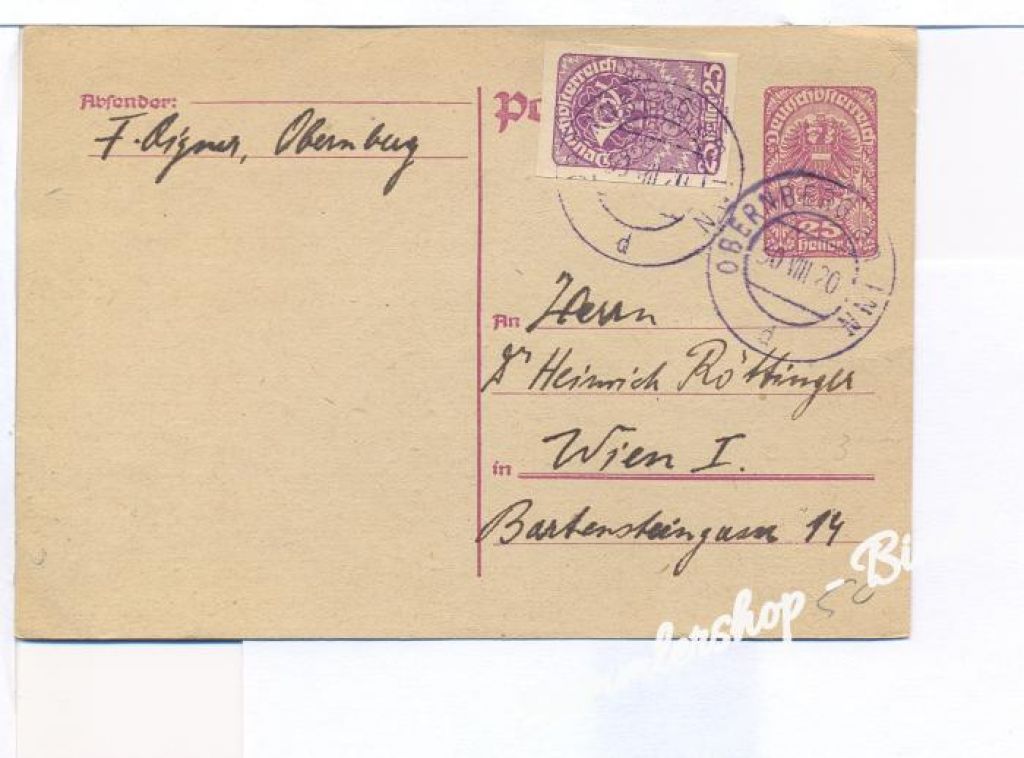 Absender:
F. Aigner, Obernberg
Po
Deutschösterreich
25
25
Heller
Deutschösterreich
25
Heller
30 VIII 20
d
OBERNBERG
INN
30 VIII 20
d
An Herrn
Dr Heinrich Röttinger
in Wien I.
Bartensteingasse 14
50
shop - Bi